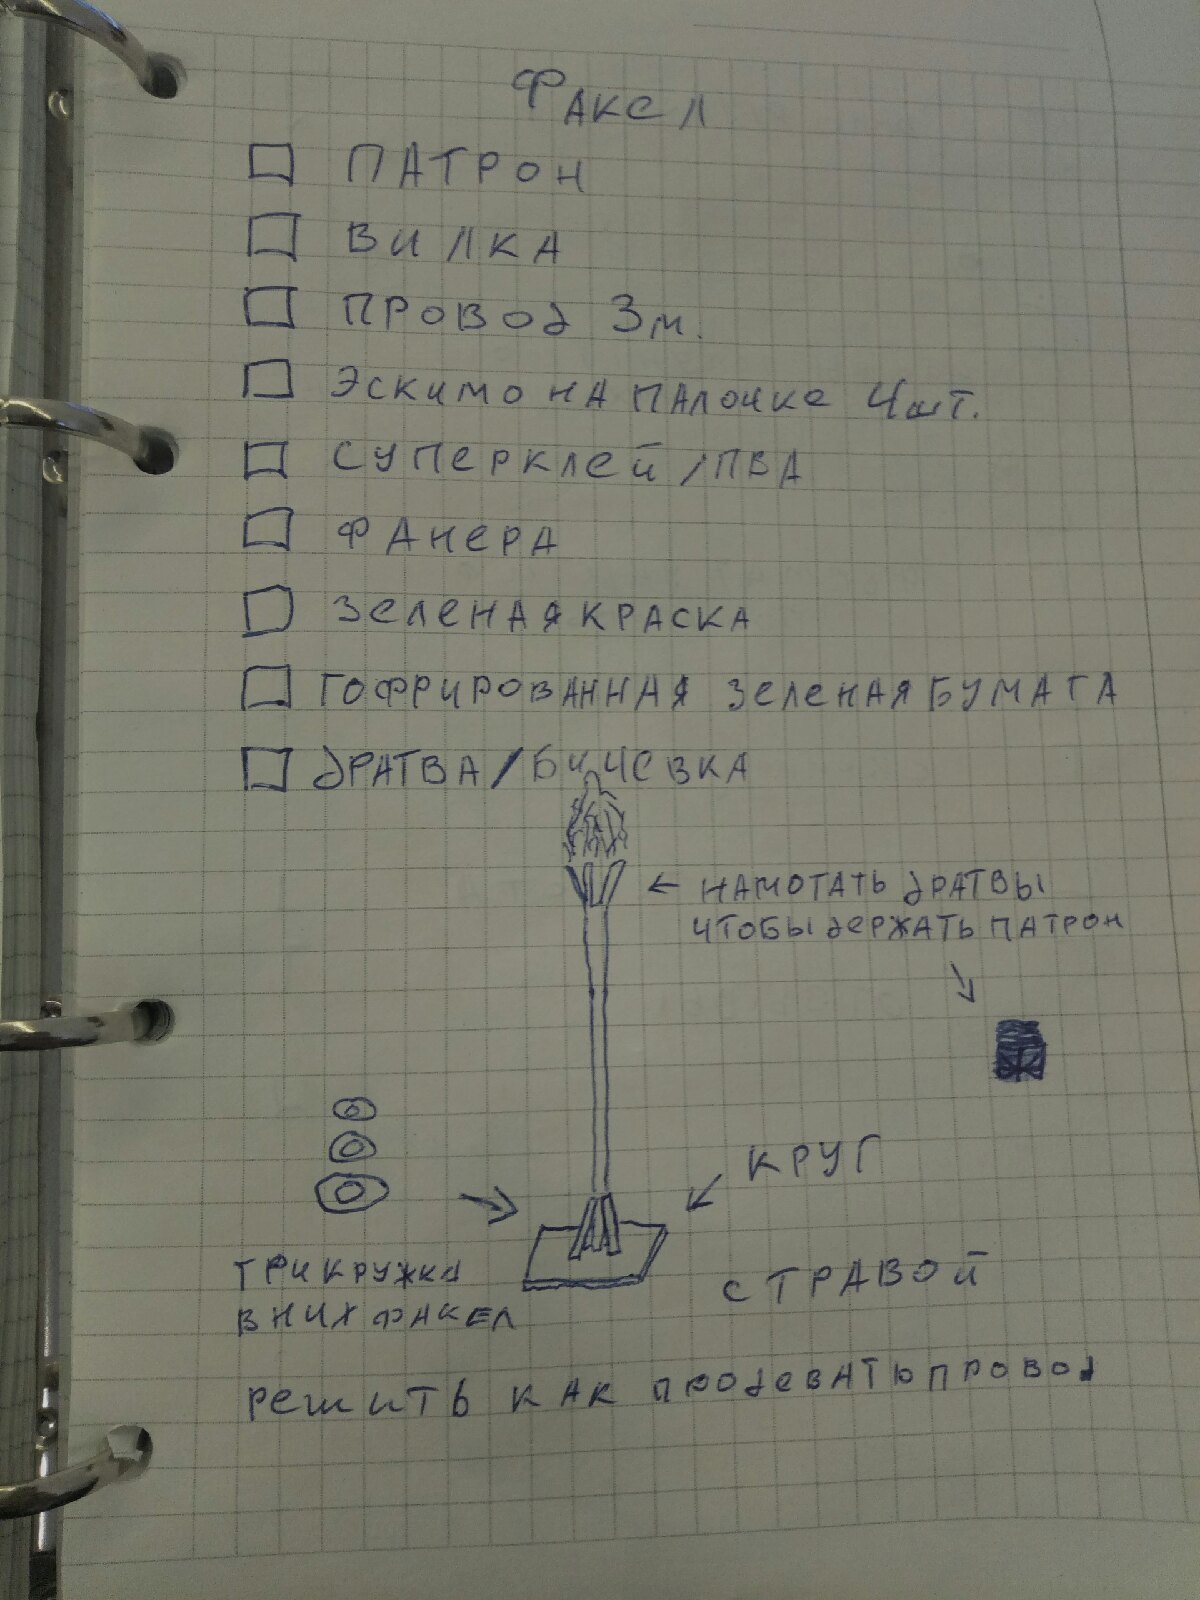 Факел
ПАТРОН
ВИЛКА
ПРОВОД 3м.
ЭСКИМО НА ПАЛОЧКЕ 4шт.
СУПЕРКЛЕЙ/ПВА
ФАНЕРА
ЗЕЛЕНАЯ КРАСКА
ГОФРИРОВАННАЯ ЗЕЛЕНАЯ БУМАГА
ДРАТВА/БИЧЕВКА
← НАМОТАТЬ ДРАТВЫ
ЧТОБЫ ДЕРЖАТЬ ПАТРОН
КРУГ
С ТРАВОЙ
ТРИ КРУЖКА
В НИХ ФАКЕЛ
РЕШИТЬ КАК ПРОДЕВАТЬ ПРОВОД